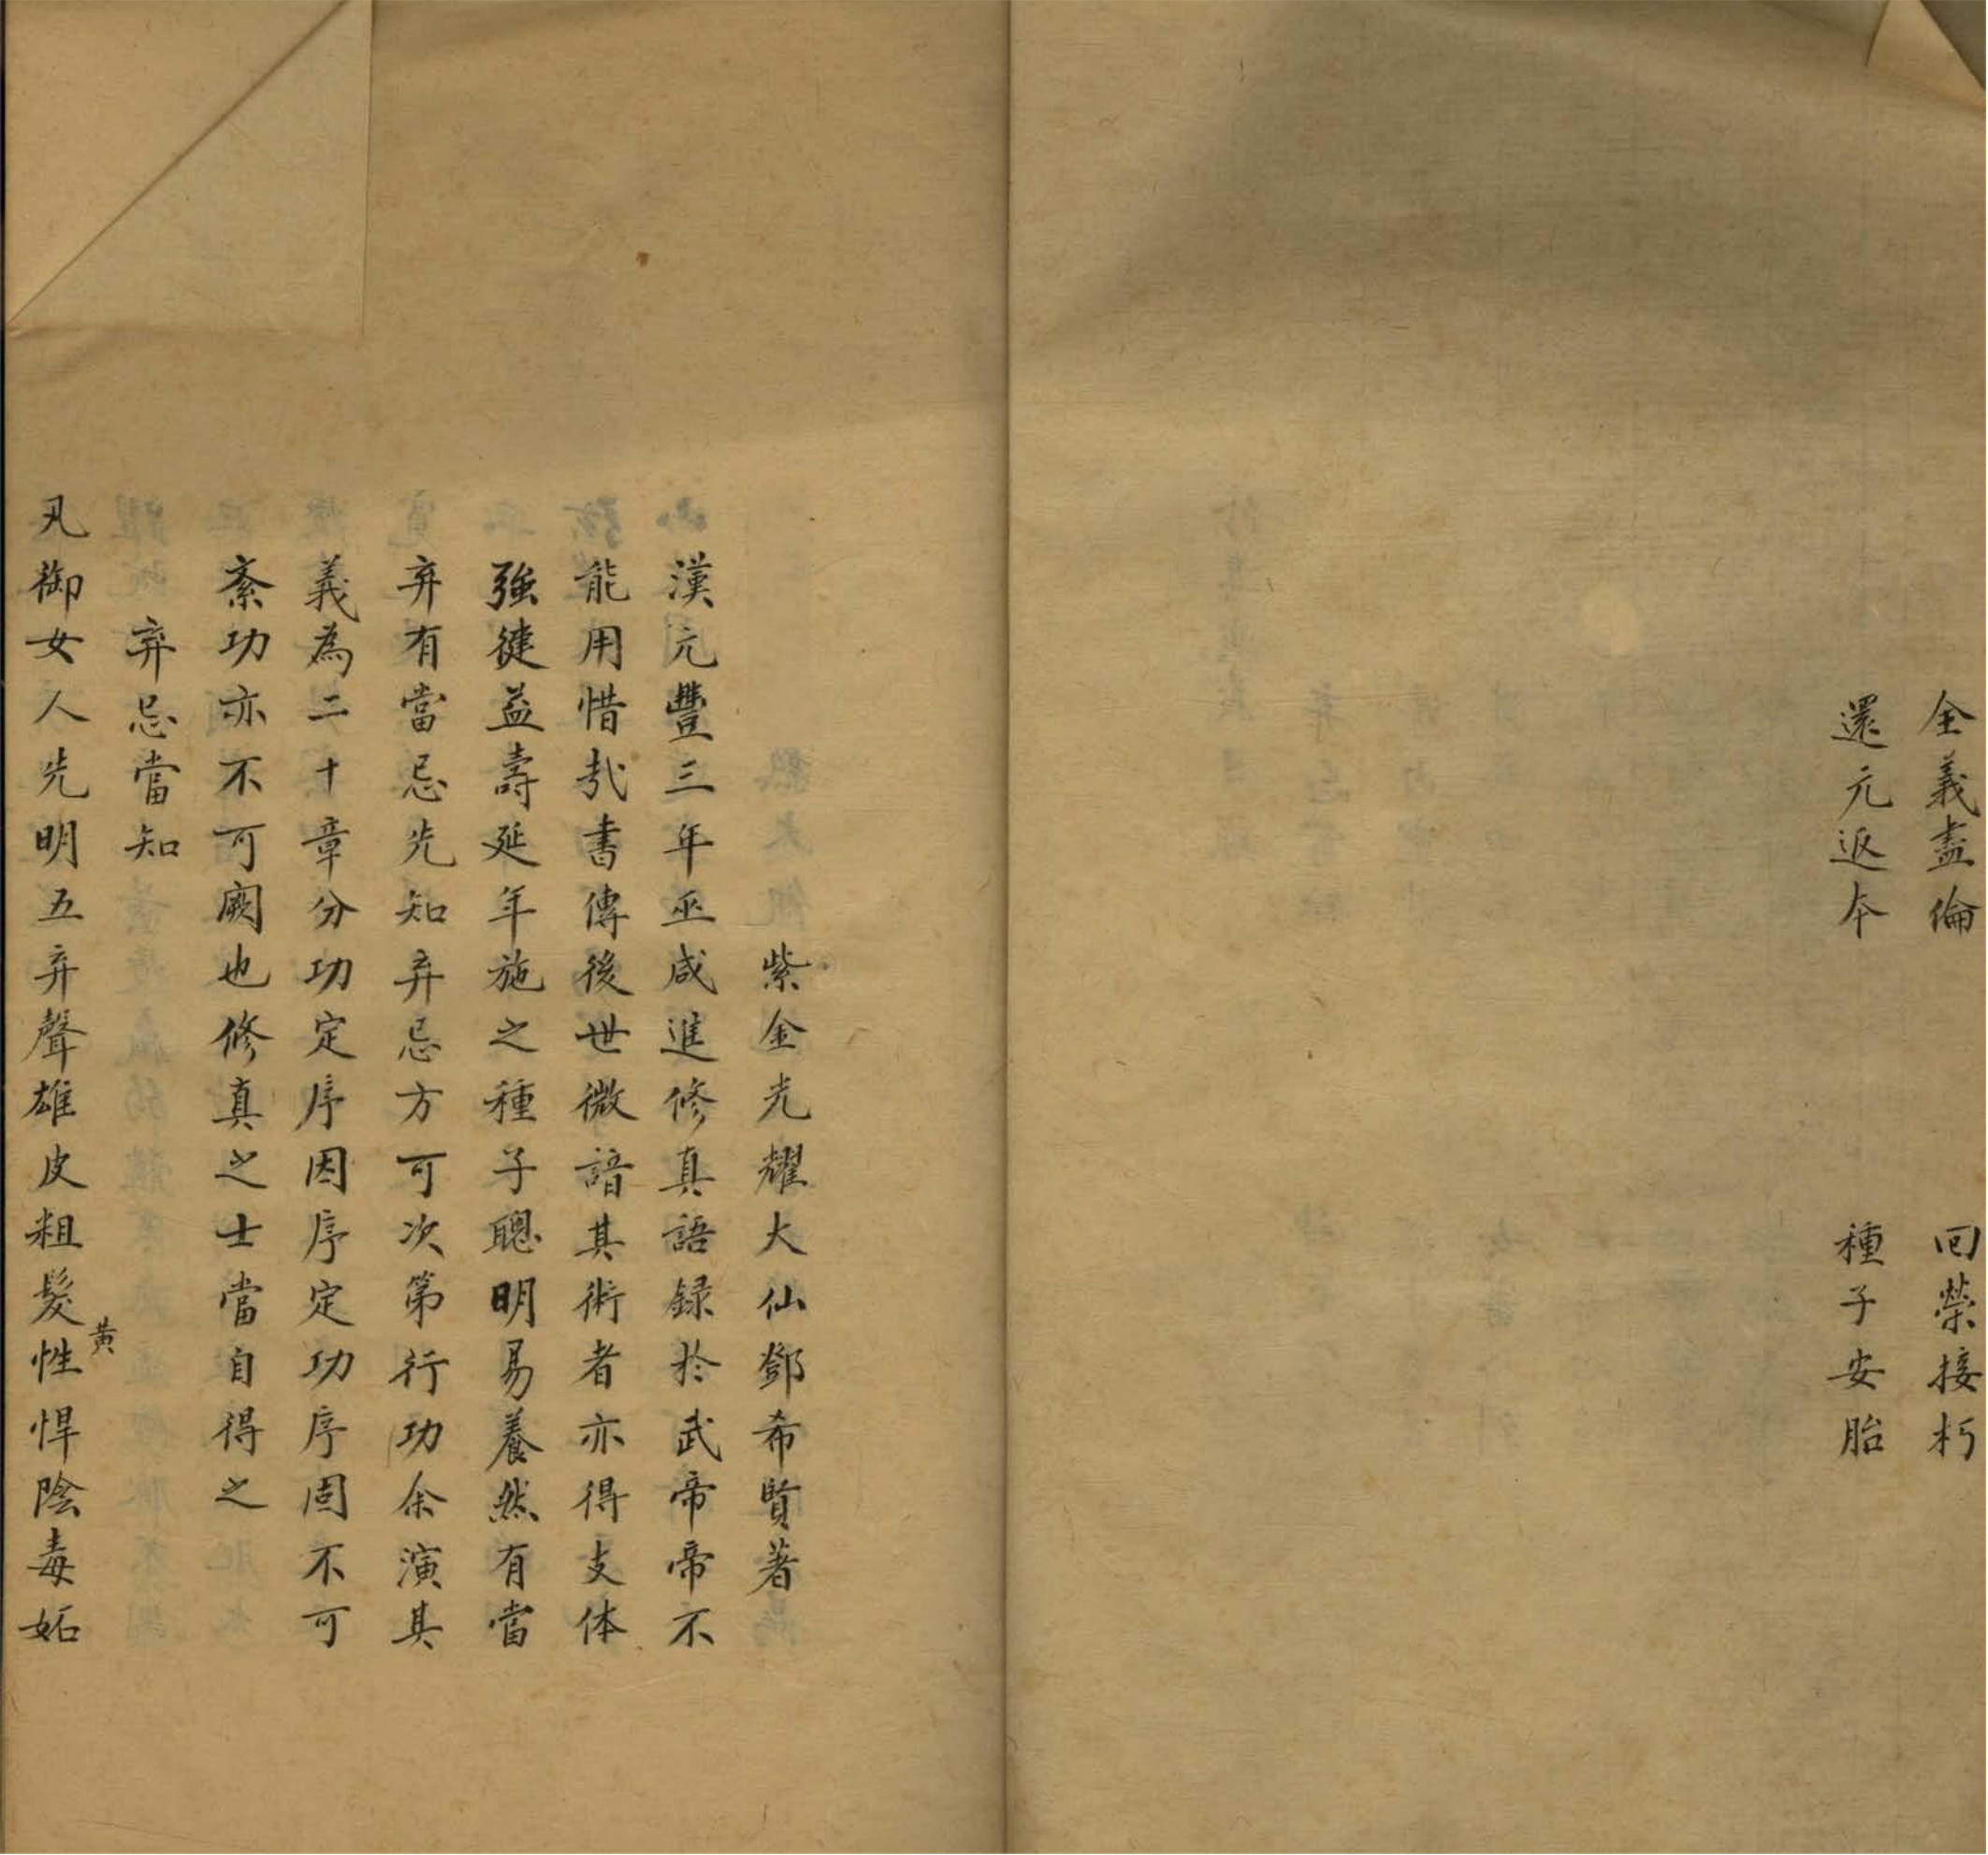 全義盡倫　回榮接朽
還元返本　種子安胎
紫金光耀大仙鄧希賢著
漢元豐三年巫咸進修真語録於武帝帝不
能用惜㢤書傳後世微諳其術者亦得支体
強健益壽延年施之種子聰明易養然有當
弃有當忌先知弃忌方可次第行功余演其
義為二十章分功定序因序定功序固不可
紊功亦不可闕也修真之士當自得之
弃忌當知
凡御女人先明五弃聲雄皮粗髮黃性悍陰毒妬